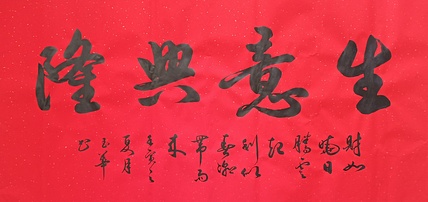 生意興隆
財如
曉日
騰雲
起
利似
春潮
帶雨
來
夏月
玉華
書